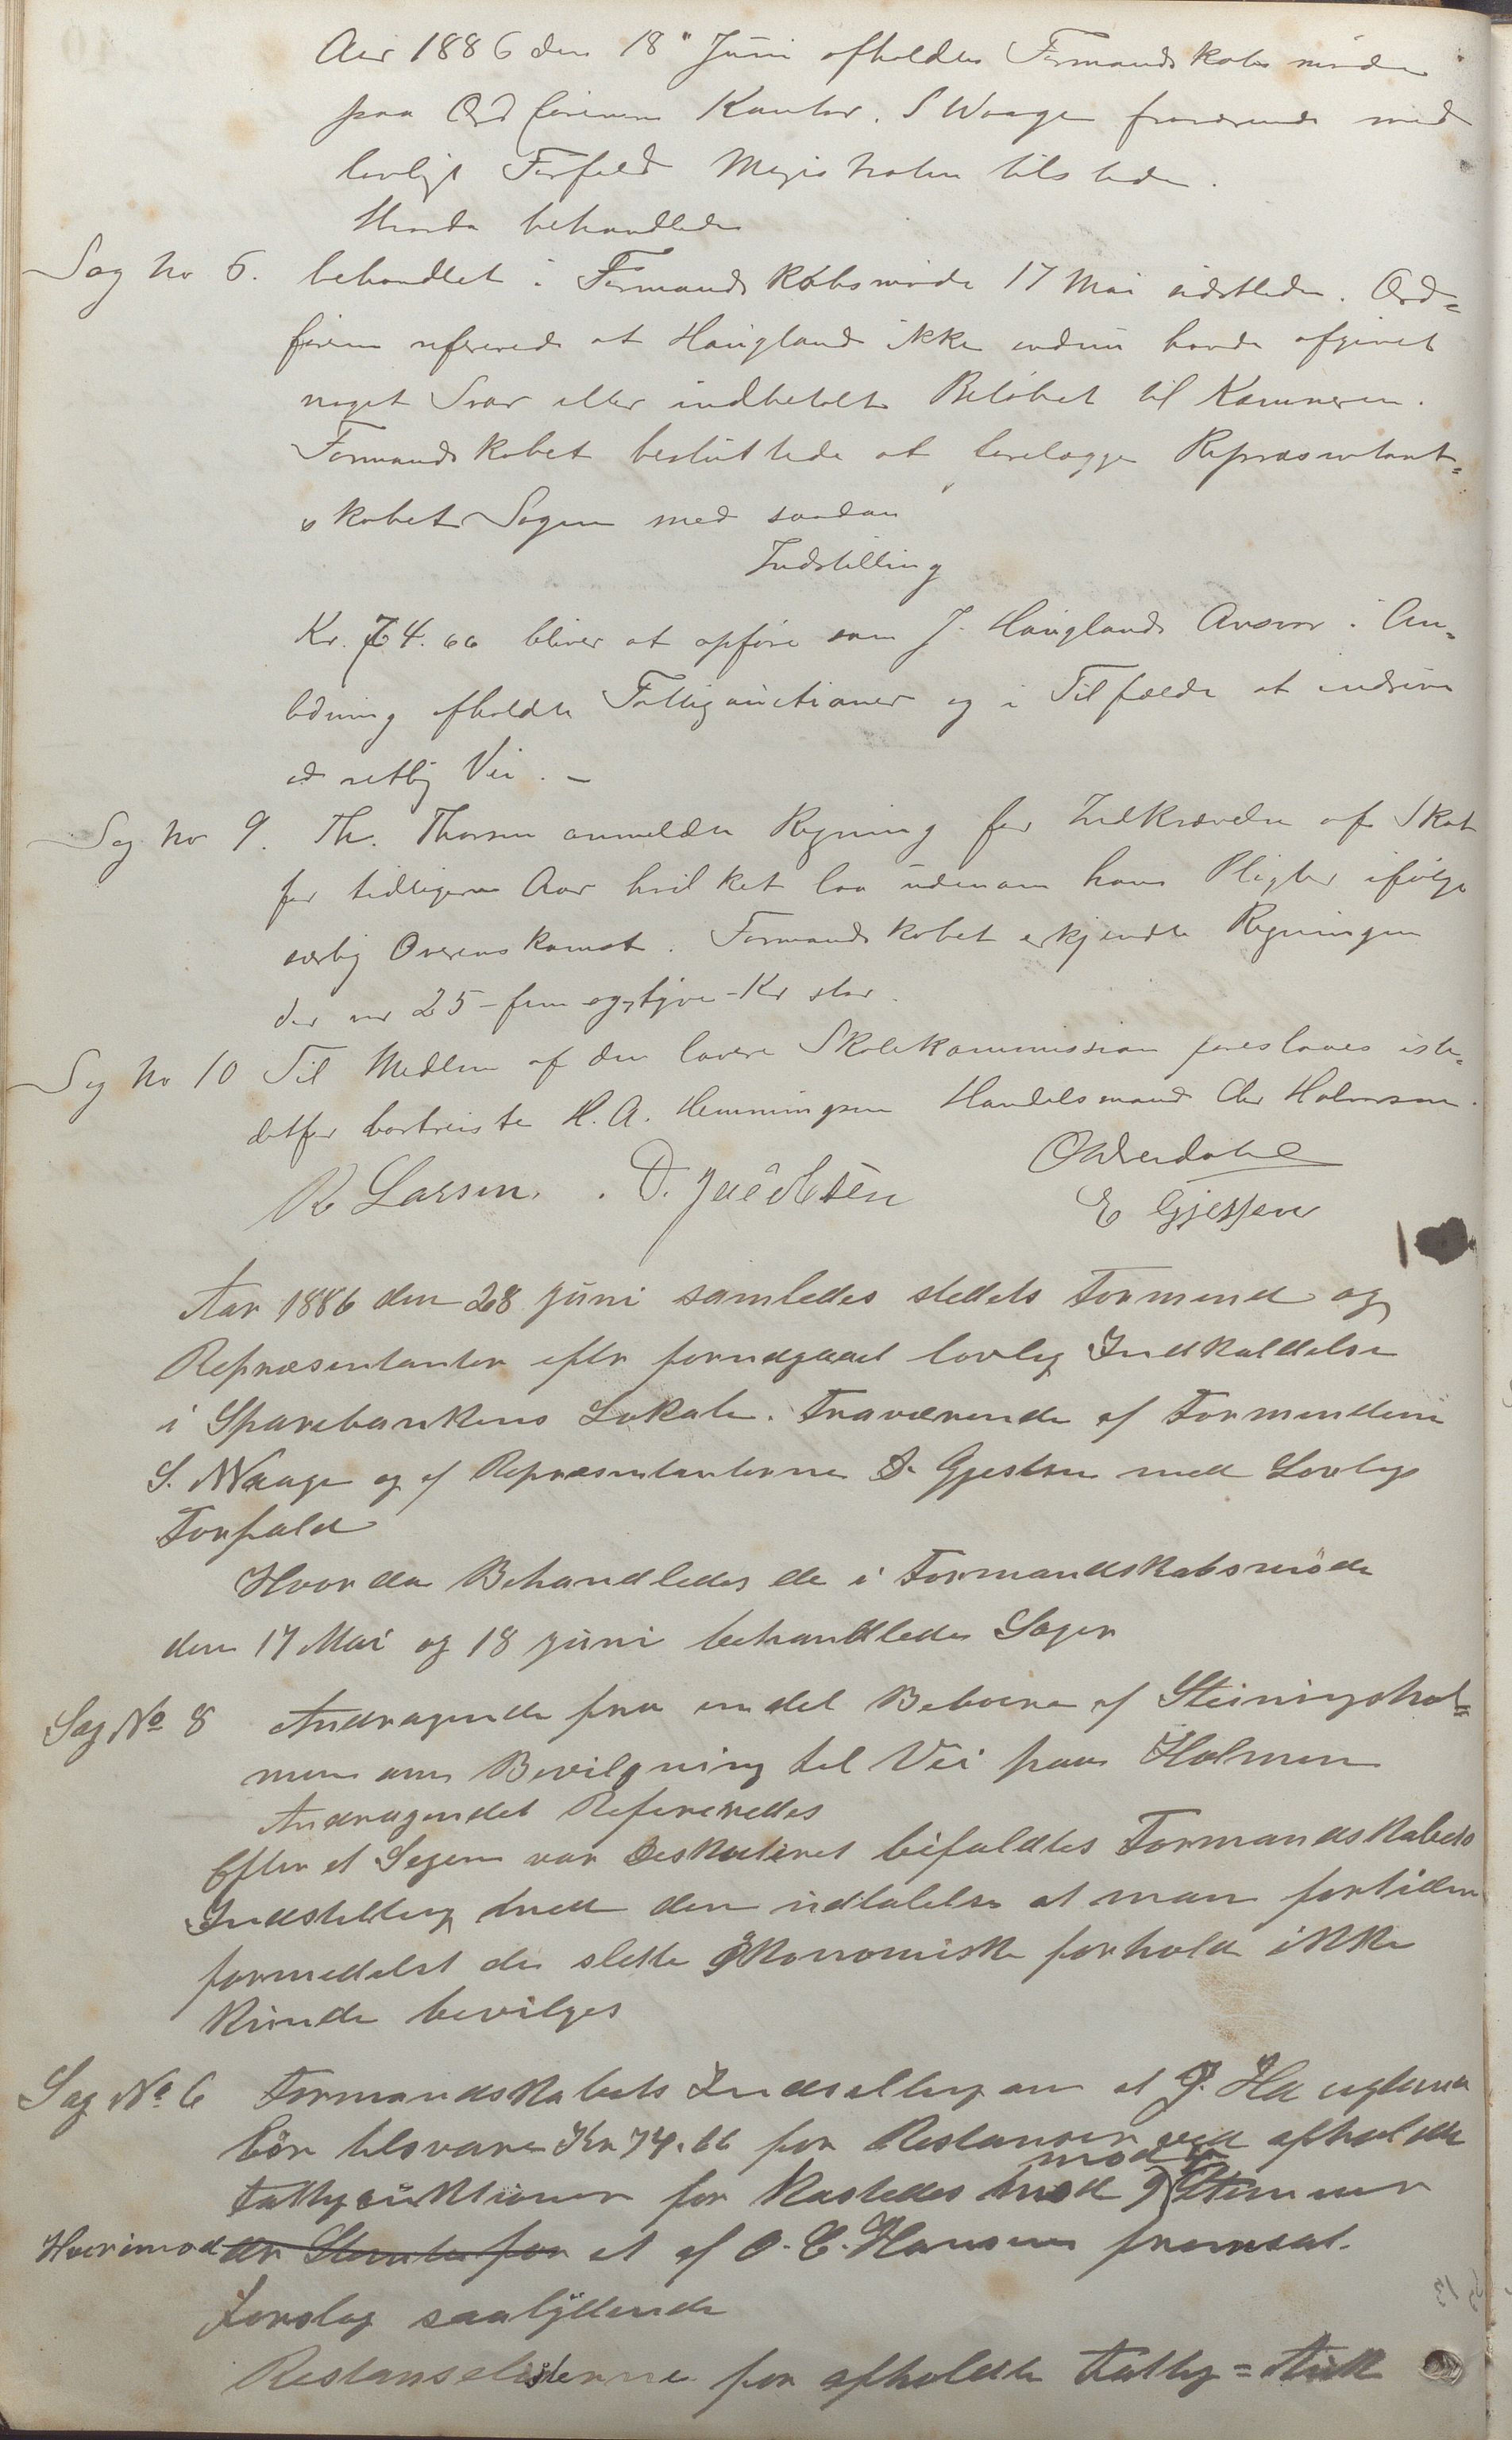 Aar 1886 den 18 Juni afholdtes Formandskabsmøde
paa Ordførerens Kontor. S Waage fraværende med
lovligt Forfald Magistraten tilstede.
Hvorda behandledes
Sag No 6. behandlet i Formandskabsmøde 17 Mai sidstleden. Ord=
føreren refererede at Haugland ikke endnu havde afgivet
noget Svar eller indbetalt Beløbet til Kæmneren.
Formandskabet besluttede at forelægge Repræsentant=
skabet Sagen med saadan
Indstilling
Kr. 74.66 bliver at opføre som J. Hauglands Ansvar i An=
ledning afholdte Fattigauctioner og i Tilfælde at inddrive
ad retlig Vei. –
Sag No 9. Th. Thorsen anmeldte Regning for Indkrævelse af Skat
for tidligere Aar hvilket laa udenom hans Pligter ifølge
særlig Overenskomst. Formandskabet erkjendte Regningen
der var 25 – fem og tyve – Kr stor.
Sag No 10 Til Medlem af den lavere Skolekommission foreslaaes iste=
detfor bortreiste H. A. Henningsen Handelsmand Chr Halvorsen.
R Larsen. D. Jacobsen
E Gjessen
Aar 1886 den 28 Juni samledes stedets Formend og
Repræsentanter efter forudgaaet lovlig Indkaldelse
i Sparebankens Lokale. Fraværende af Formendene
S. Waage og af Repræsentanterne S. Gjestsen med Lovlige
Forfald
Hvorda Behandledes de i Formandskabsmøde
den 17 Mai og 18 Juni behandlede Sager
Sag No 8 Andragende fra en del Beboere af Steiningshol=
men om Bevilgning til Vei paa Holmen
Andragendet Refereredes
Efter at Sagen var Deskuteret bifaldtes Formandskabets
Indstilling med den udtalelse at man fortiden
formedelst de slette økonomiske forhold ikke
kunde bevilges
Sag No 6 Formandskabets Indstelling om at J. Haugland
bør tilsvare Kr 74.66 for Restanser ved afholdte
Fattigauktioner forkastedes mod Stemmer
Hvorimod der Stemtes for et af O. C. Hansen fremsat
forslag saalydende
Restanselisterne for afholdte Fattig = Auk